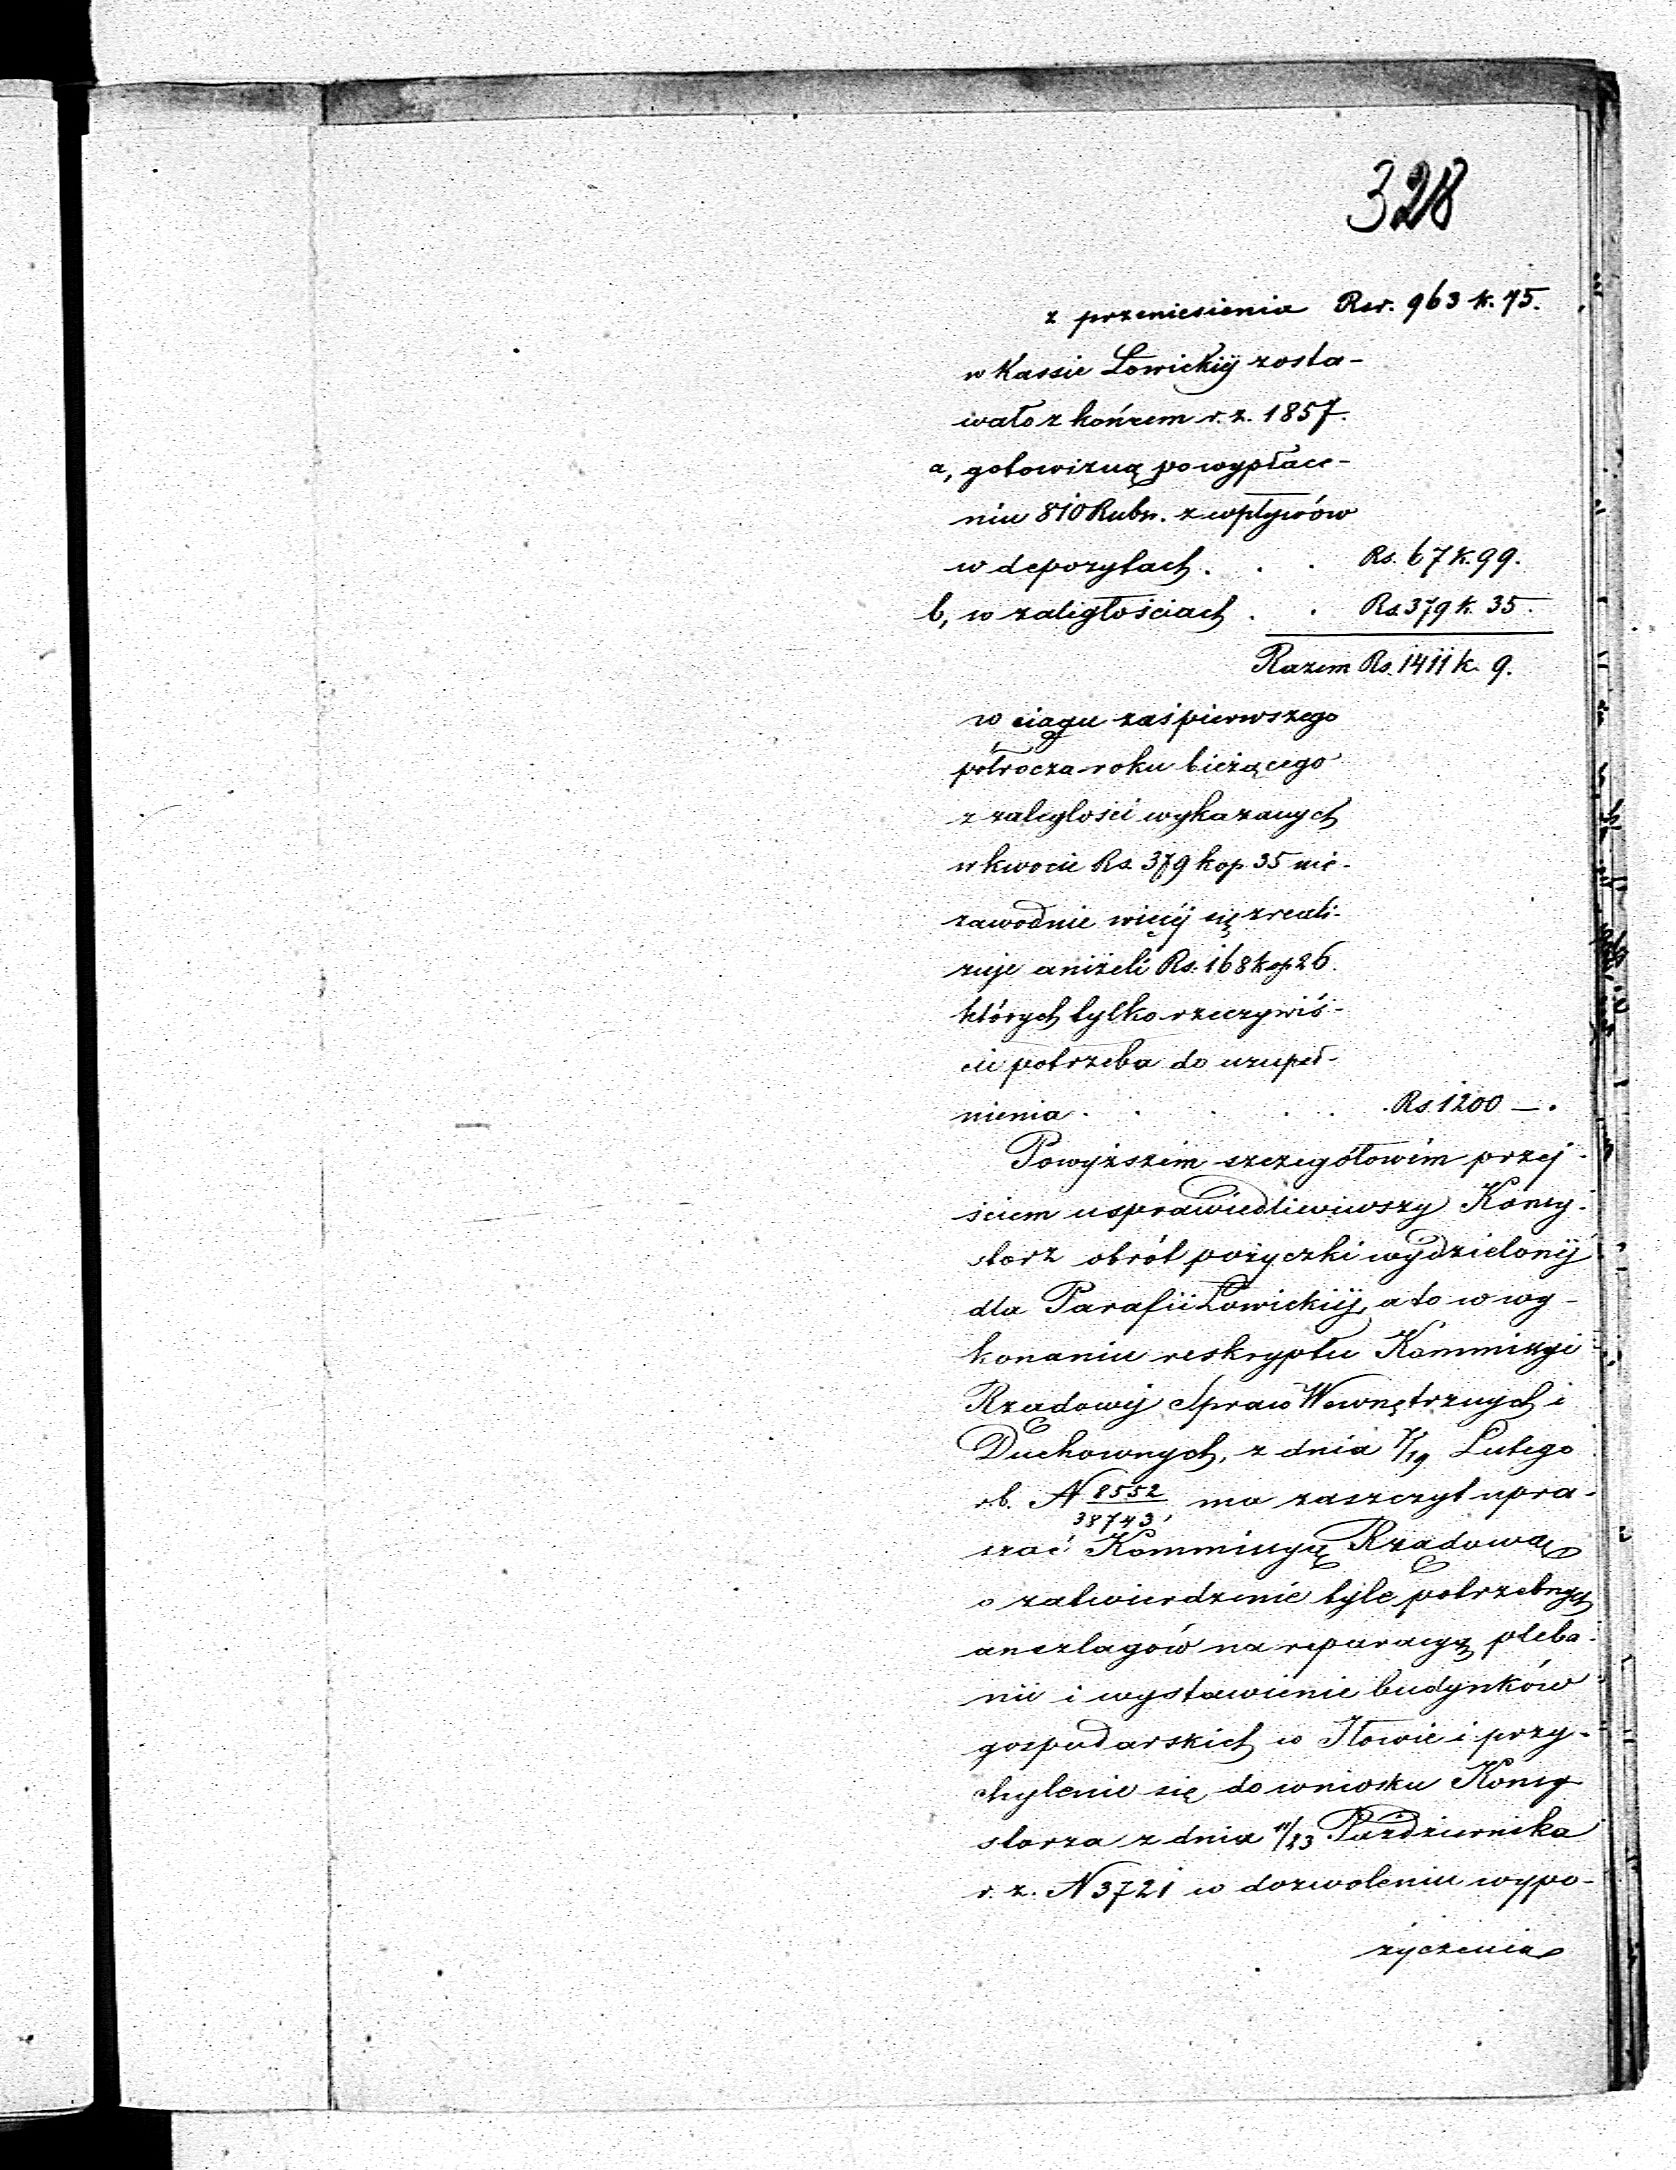 328
z przeniesienia Rsr. 963 k. 75.
w Kassie Łowickiéj zosta-
wało z końcem r. z. 1857.
a, gotowizną po wypłace-
niu 810 Rubr. z wpływów
w depozytach . . . Rs. 67 k. 99.
b, w zaległościach . . Rs. 379 k. 35.
Razem Rs. 1411 k. 9.
w ciągu zaś pierwszego
półrocza roku bieżącego
z zaległości wykazanych
w kwocie Rs. 379 kop 35 nie-
zawodnie więcéj się zreali-
zuje aniżeli Rs. 168 kop 26.
których tylko rzeczywiś-
cie potrzeba do uzupeł-
nienia . . . . . Rs. 1200 — .
Powyższém szczegółowém przej-
ściem usprawiedliwiwszy Konsy-
storz obrót pożyczki wydzielonéj
dla Parafii Łowickiéj, a to w wy-
konaniu reskryptu Kommissyi
Rządowéj Spraw Wewnętrznych i
Duchownych, z dnia 7/19 Lutego
r.b. N 8552/38743, ma zaszczyt upra-
szać Kommissyę Rządową
o zatwierdzenie tyle potrzebnych
anszlagów na reparacyą pleba-
nii i wystawienie budynków
gospodarskich w Iłowie i przy-
chylenie się do wniosku Konsy-
storza z dnia 11/23 Października
r. z. N 3721 w dozwoleniu wypo-
życzenia